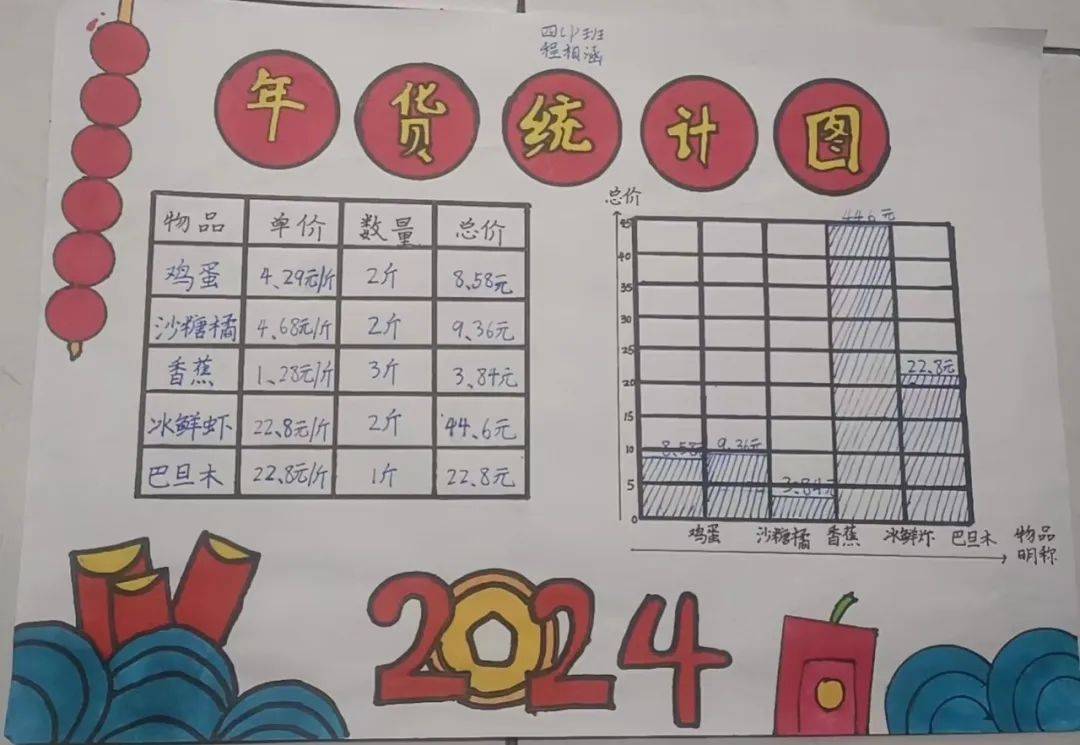 四(1)班
程相涵
年货统计图
物品 单价 数量 总价
鸡蛋 4.29元/斤 2斤 8.58元
沙糖橘 4.68元/斤 2斤 9.36元
香蕉 1.28元/斤 3斤 3.84元
冰鲜虾 22.8元/斤 2斤 44.6元
巴旦木 22.8元/斤 1斤 22.8元
总价
45
40
35
30
25
20
15
10
5
0
44.6元
22.8元
8.58
9.36元
3.84元
鸡蛋 沙糖橘 香蕉 冰鲜虾 巴旦木 物品
明称
2024